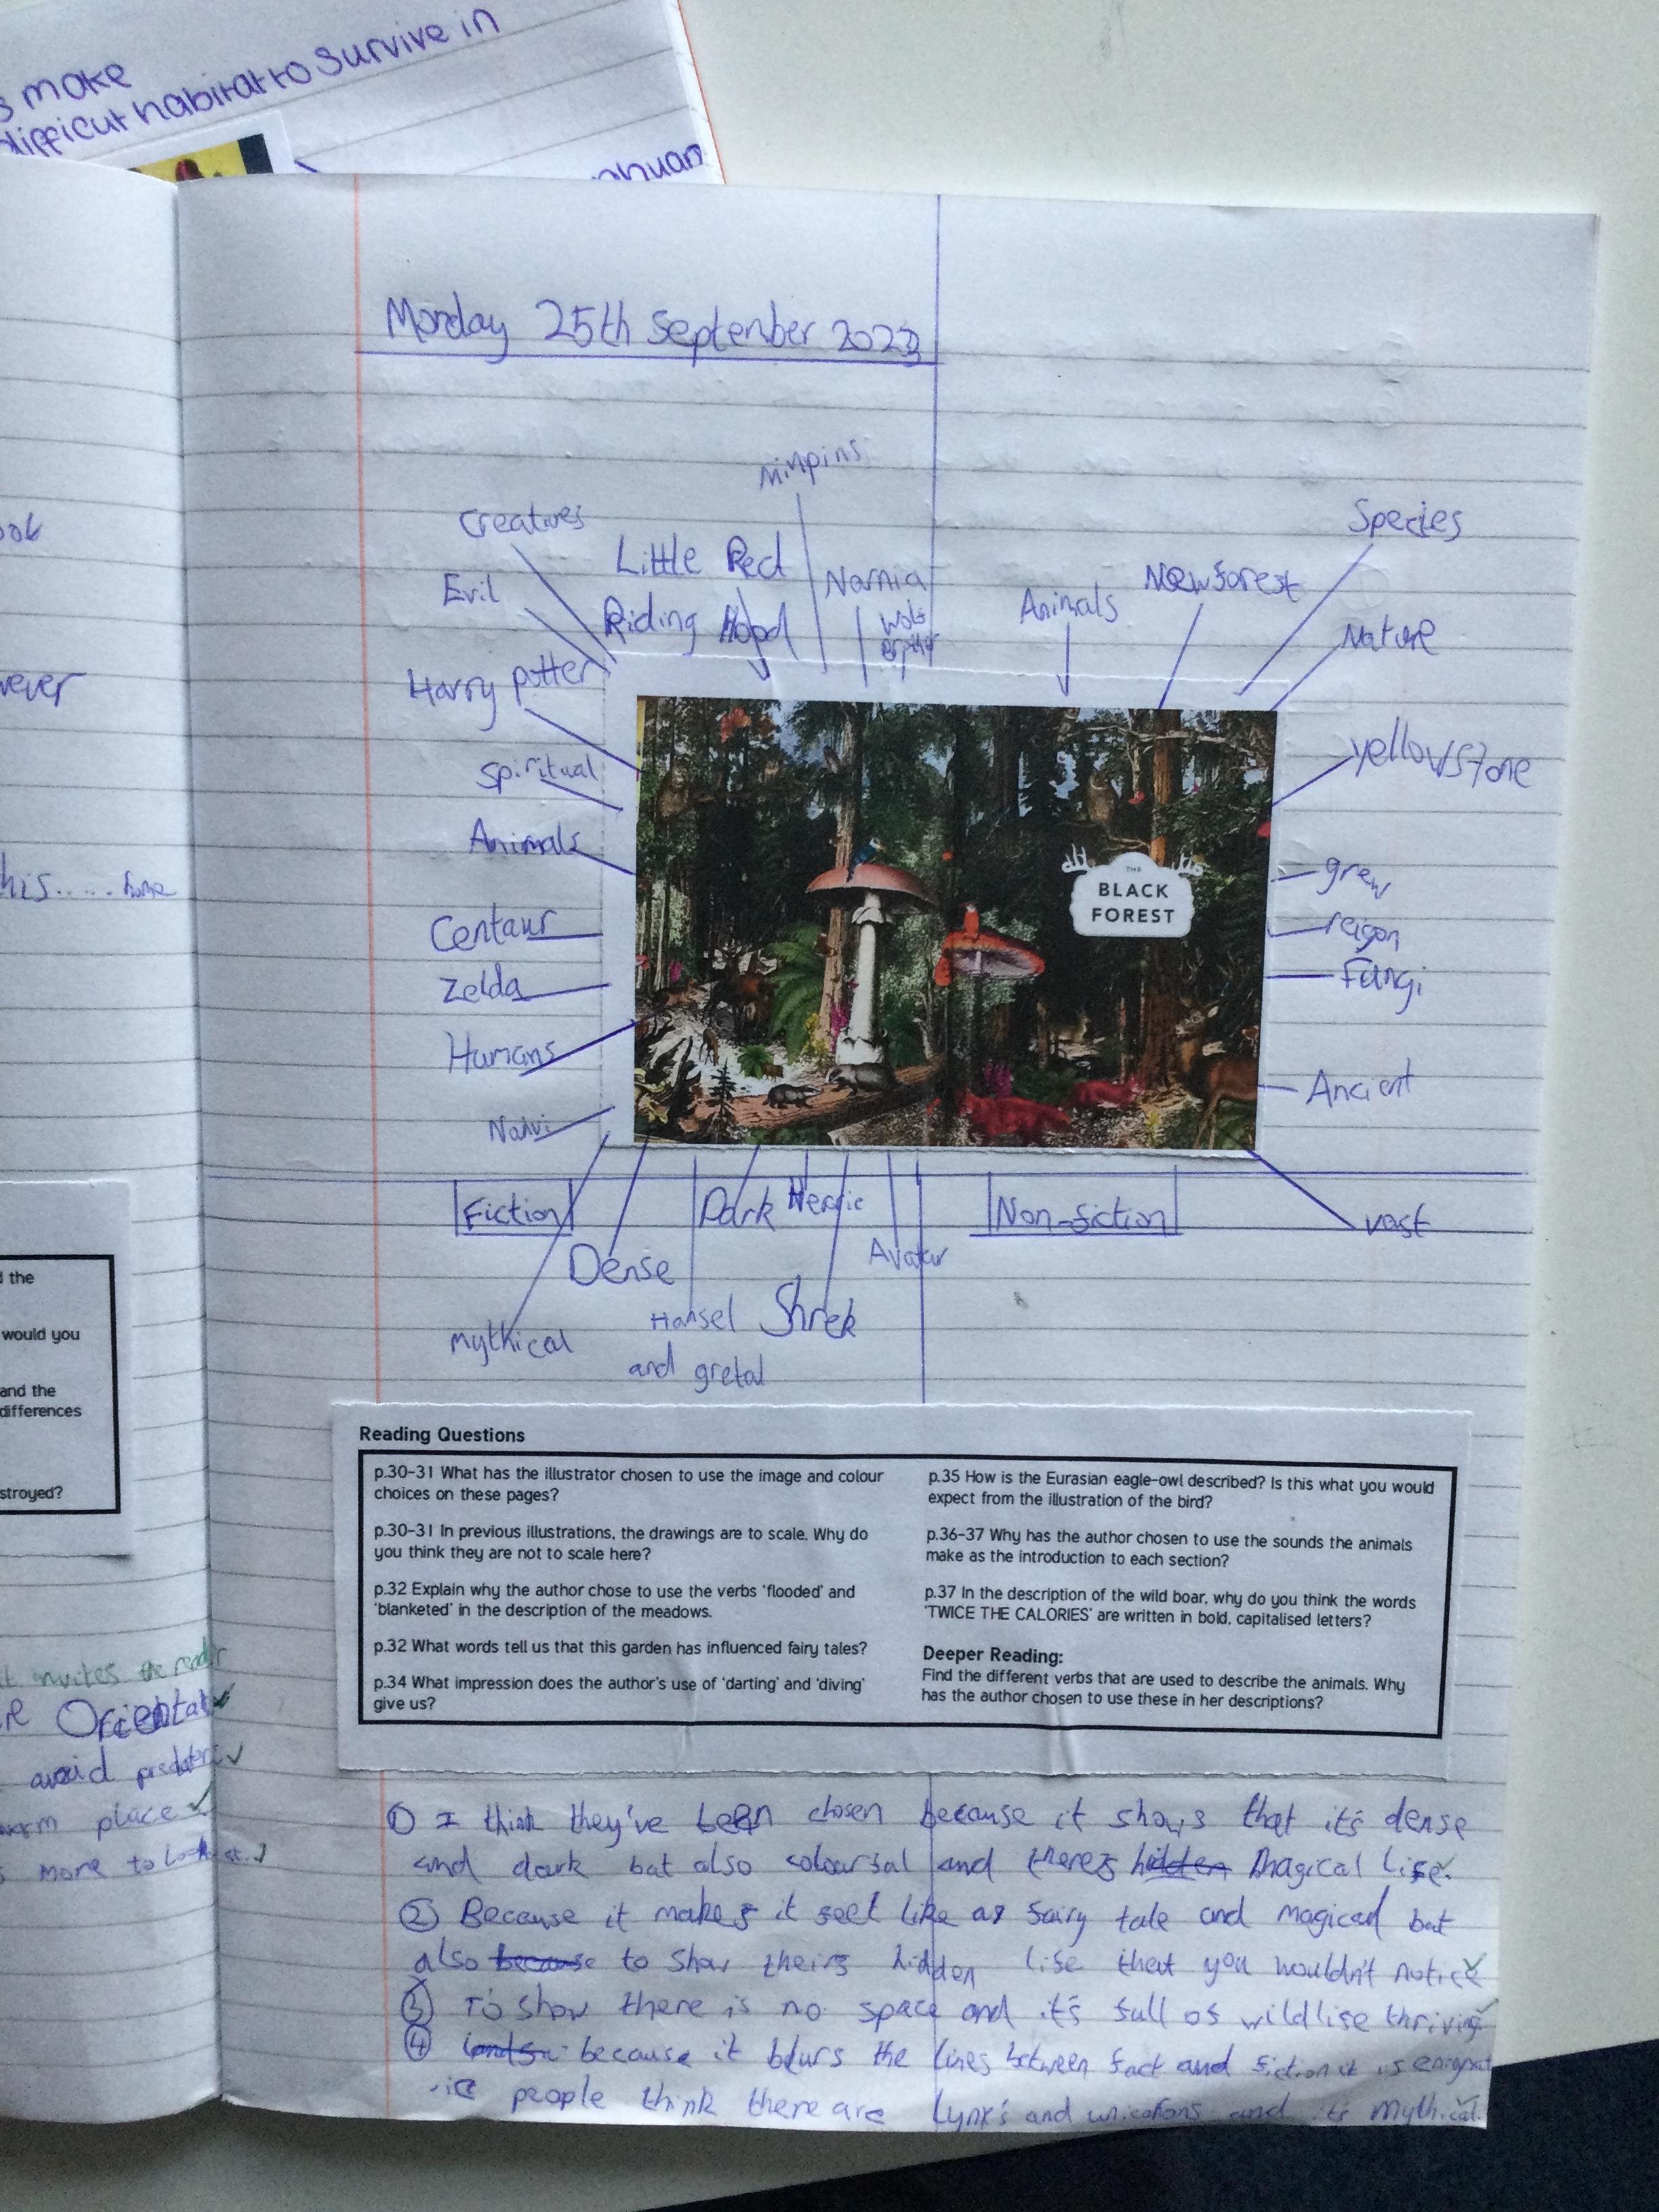 s make
difficult habitat to survive in
Monday 25th September 2023
Minpins
Creatives
Species
Little Red
Narnia
New forest
Evil
Animals
Riding Hood
Wolf
Nature
Harry potter
Spiritual
yellowstone
Animals
THE
BLACK
FOREST
grew
Centaur
reigon
Zelda
Fungi
Humans
Ancient
Nahvi
Fiction
Dark
Heroic
Non-fiction
vast
Dense
Avatar
Hansel
Shrek
mythical
and gretal
Reading Questions
p.30-31 What has the illustrator chosen to use the image and colour
choices on these pages?
p.30-31 In previous illustrations, the drawings are to scale. Why do
you think they are not to scale here?
p.32 Explain why the author chose to use the verbs 'flooded' and
'blanketed' in the description of the meadows.
p.32 What words tell us that this garden has influenced fairy tales?
p.34 What impression does the author's use of 'darting' and 'diving'
give us?
p.35 How is the Eurasian eagle-owl described? Is this what you would
expect from the illustration of the bird?
p.36-37 Why has the author chosen to use the sounds the animals
make as the introduction to each section?
p.37 In the description of the wild boar, why do you think the words
'TWICE THE CALORIES' are written in bold, capitalised letters?
Deeper Reading:
Find the different verbs that are used to describe the animals. Why
has the author chosen to use these in her descriptions?
1) I think they've been chosen because it shows that it's dense
and dark but also colourful and there's hidden magical life.
2) Because it makes it feel like a fairy tale and magical but
also because to show theirs hidden life that you wouldn't notice
3) To show there is no space and it's full of wildlife thriving
4) because it blurs the lines between fact and fiction it is enigmat
ic people think there are lynx's and unicorns and it's mythical.
ook
ever
his..... home
the
would you
and the
differences
stroyed?
it invites the reader
avoid predators
warm place
more to look at.